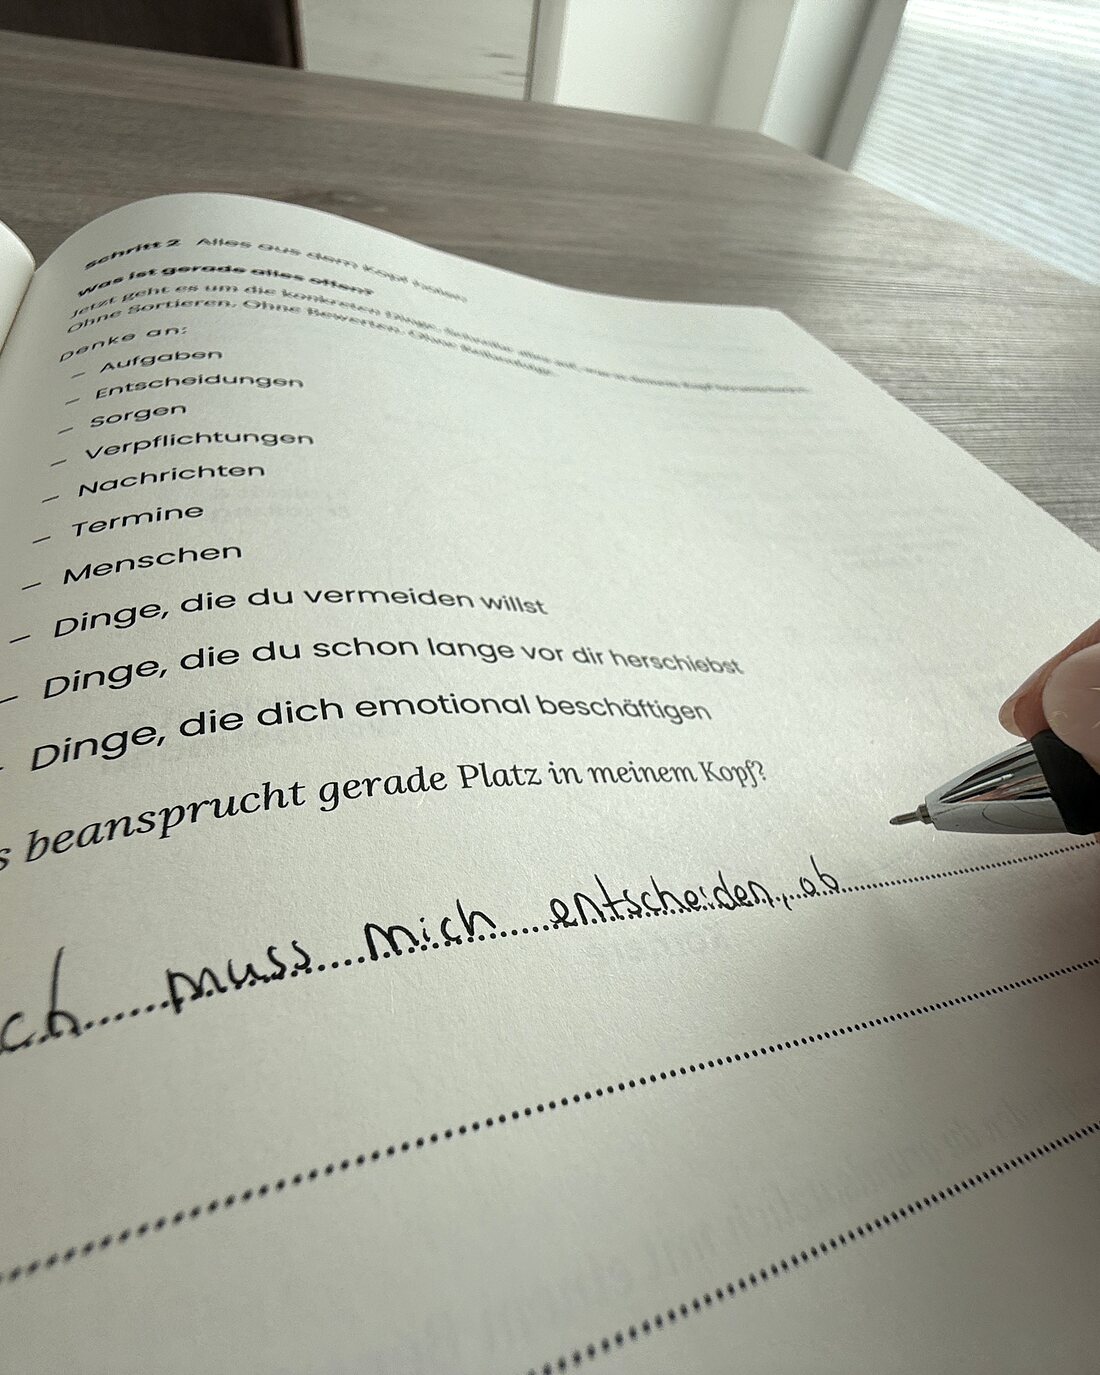 Schritt 2 Alles aus dem Kopf holen
Was ist gerade alles offen?
Jetzt geht es um die konkreten Dinge. Schreibe alles auf, was in deinem Kopf
Ohne Sortieren. Ohne Bewerten. Ohne Reihenfolge.
Denke an:
– Aufgaben
– Entscheidungen
– Sorgen
– Verpflichtungen
– Nachrichten
– Termine
– Menschen
– Dinge, die du vermeiden willst
– Dinge, die du schon lange vor dir herschiebst
– Dinge, die dich emotional beschäftigen
s beansprucht gerade Platz in meinem Kopf?
ch muss mich entscheiden, ob